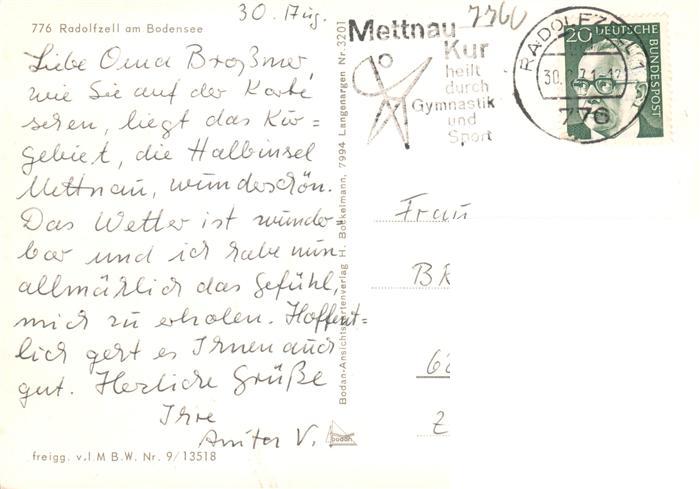 30. Aug.
776 Radolfzell am Bodensee
Liebe Oma Broßmer,
wie Sie auf der Karte
sehen, liegt das Kur=
gebiet, die Halbinsel
Mettnau, wunderschön.
Das Wetter ist wunder=
bar und ich habe nun
allmählich das Gefühl,
mich zu erholen. Hoffent=
lich geht es Ihnen auch
gut. Herzliche Grüße
Ihre
Anita V.
freigg. v. I M B.W. Nr. 9/13518
Bodan-Ansichtskartenverlag H. Bockelmann, 7994 Langenargen Nr. 3201
bodan
7760
Mettnau
Kur
heilt
durch
Gymnastik
und
Sport
RADOLFZELL
30. 71-12
776
20 DEUTSCHE
BUNDESPOST
Frau
BR
Z